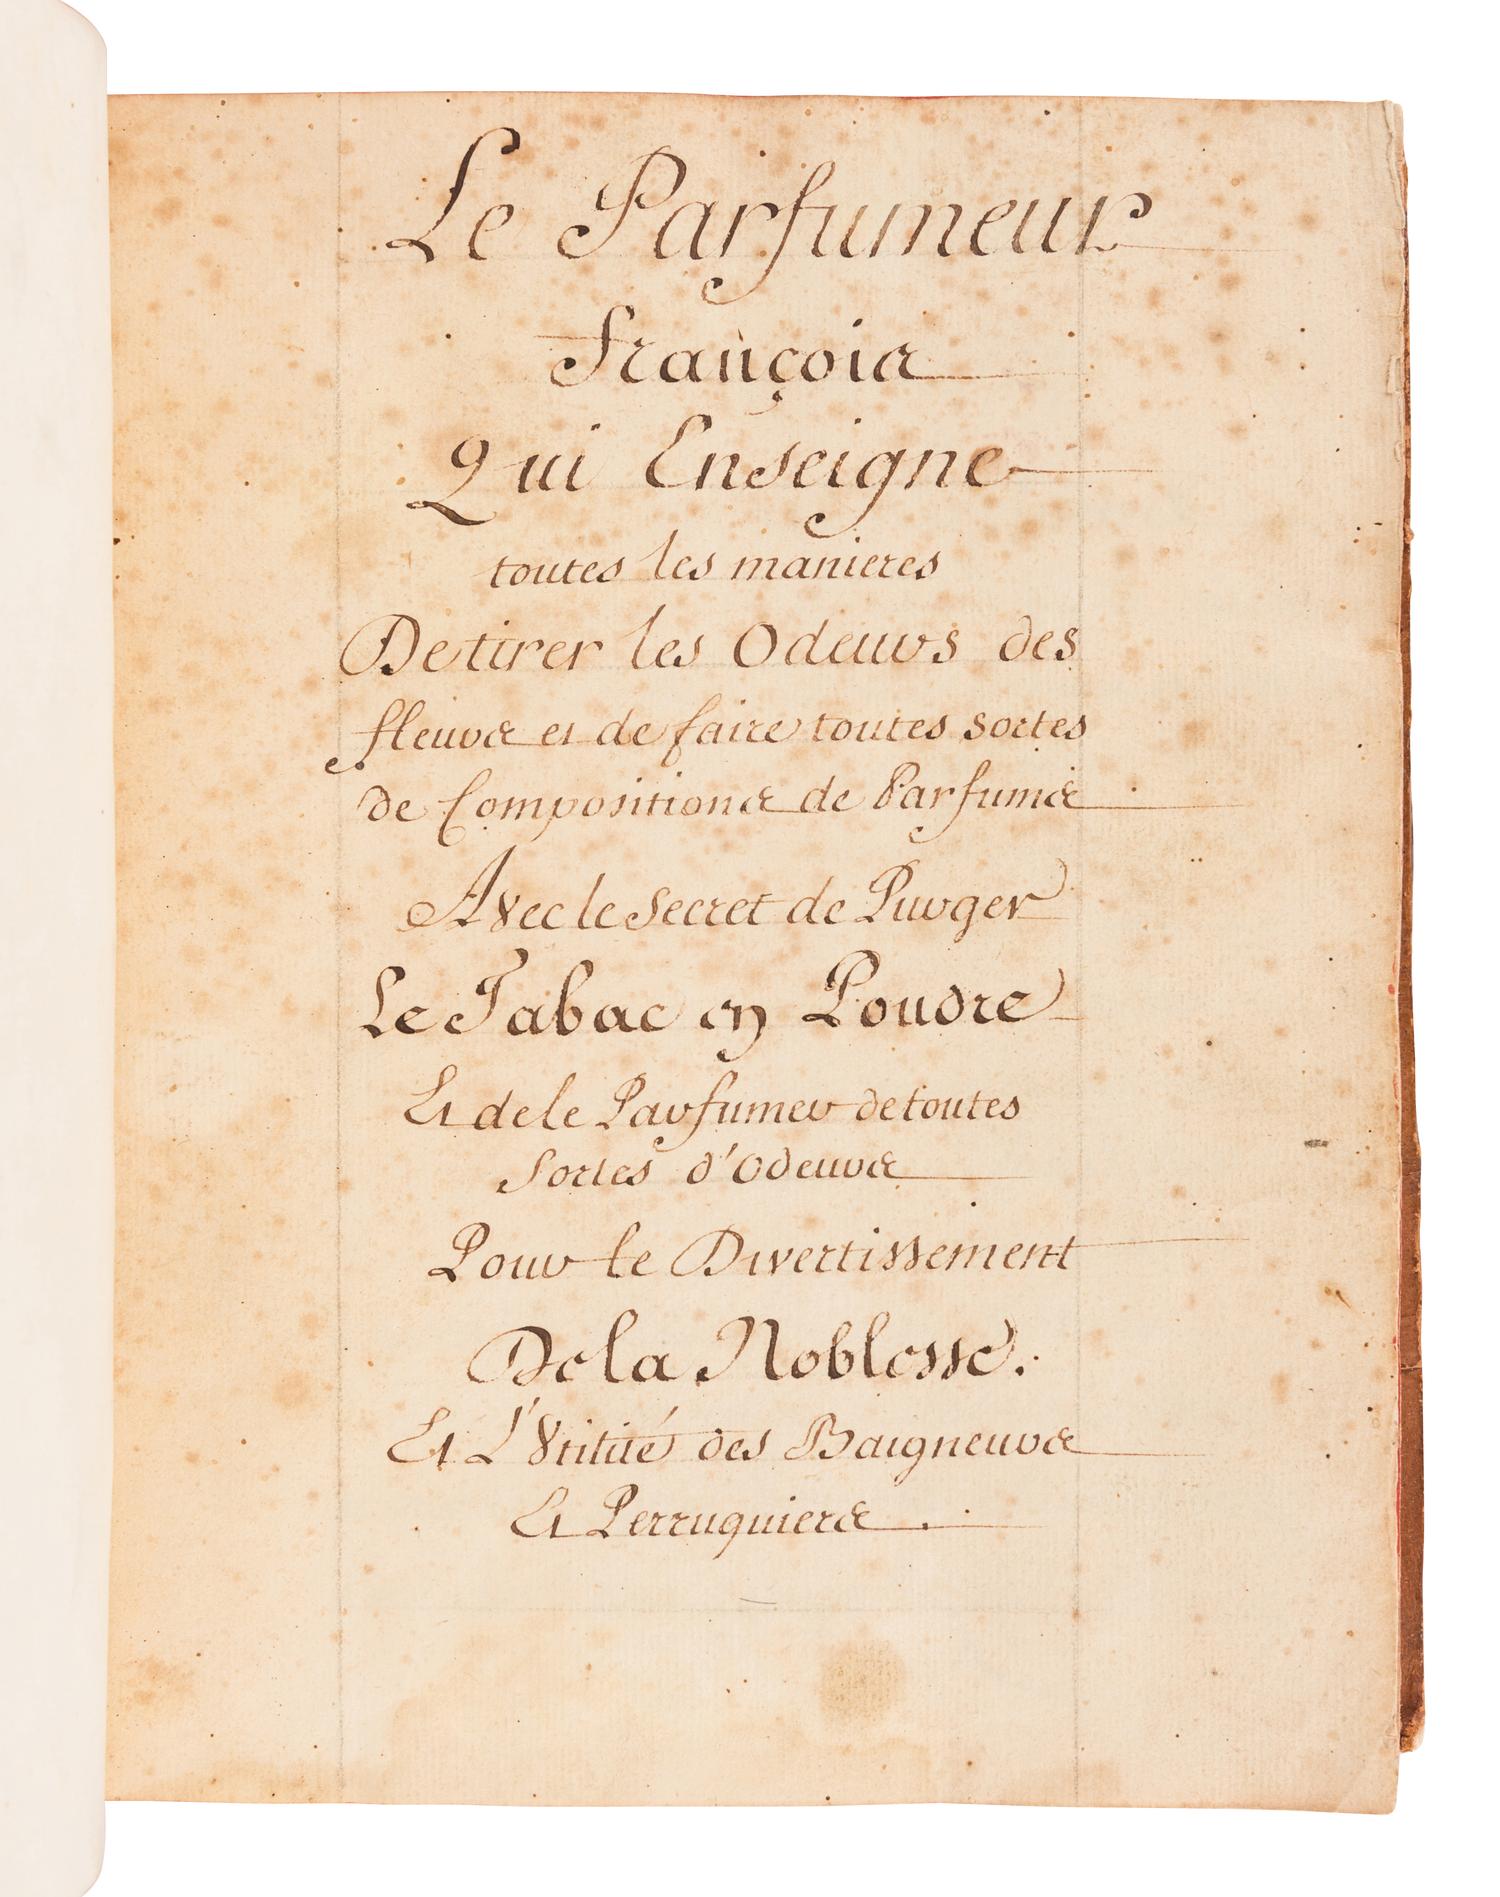 Le Parfumeur
François
Qui Enseigne
toutes les manieres
De tirer les Odeurs des
fleurs et de faire toutes sortes
de Compositions de Parfums
Avec le Secret de Purger
Le Tabac en Poudre
Et de le Parfumer de toutes
Sortes d'Odeurs
Pour le Divertissement
De la Noblesse.
Et L'Vtilité des Baigneurs
Et Perruquiers.